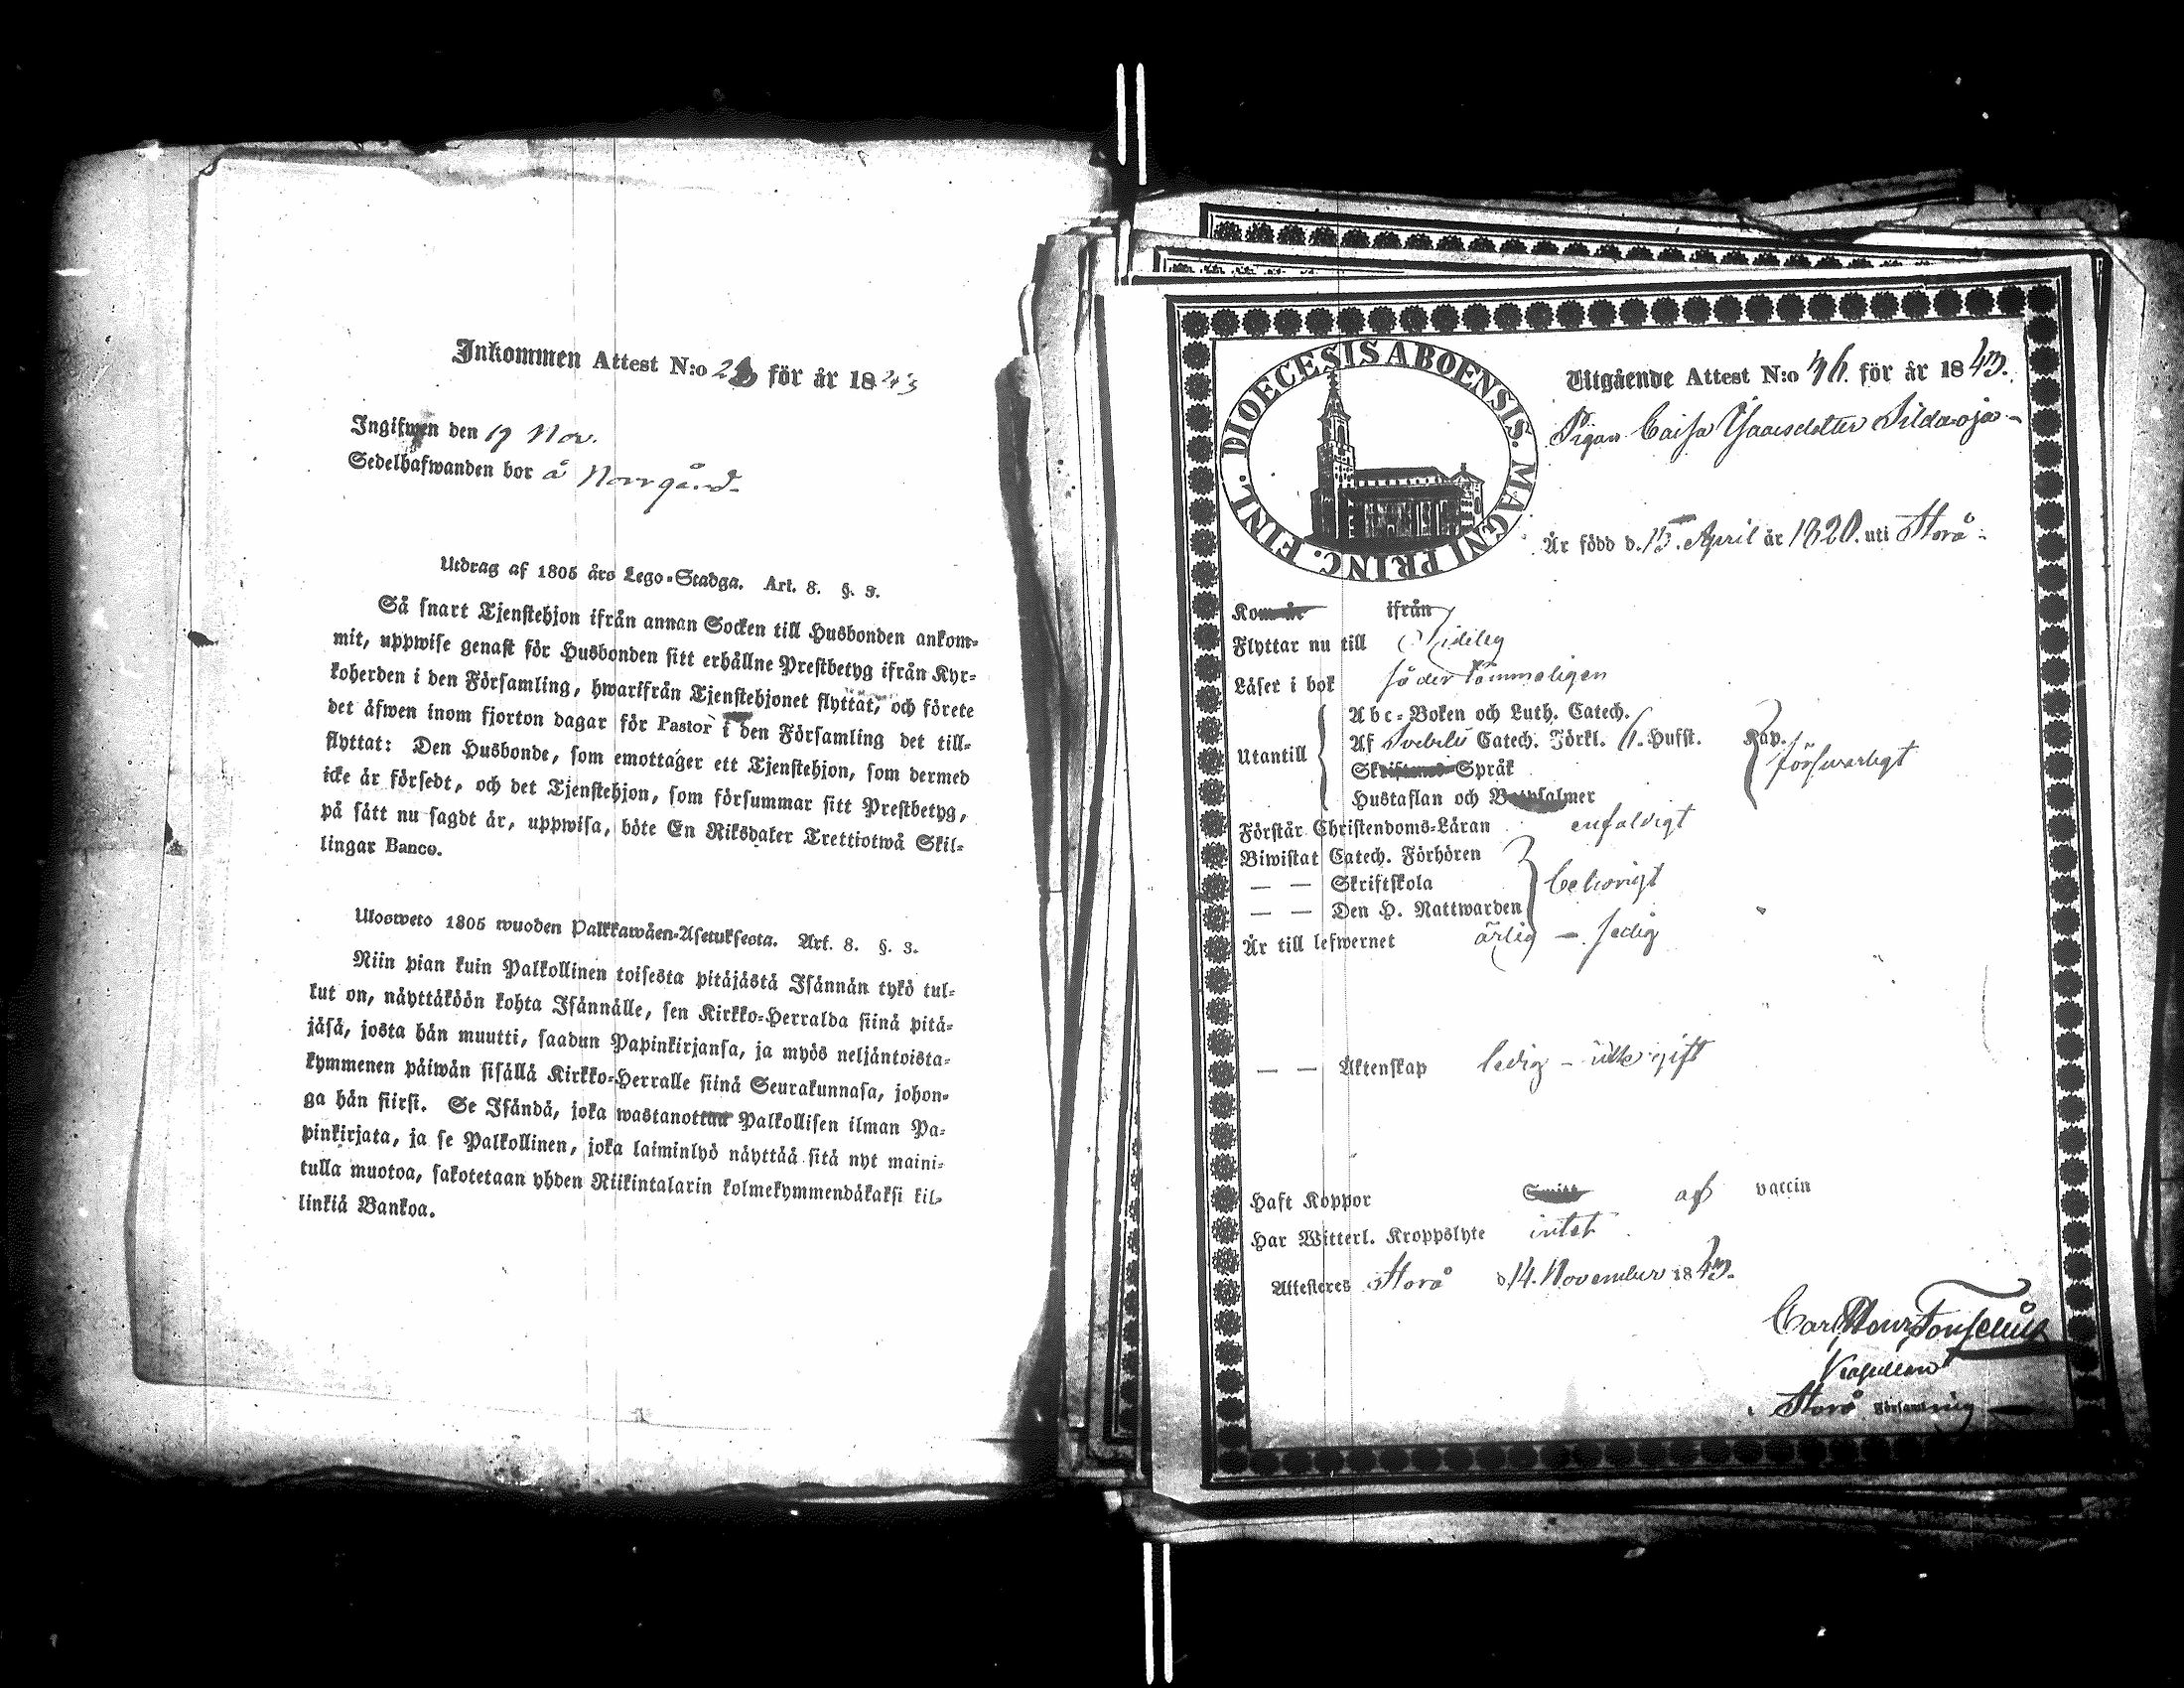 Inkommen Attest N:o 2 för år 1843
Ingifwen den 19 Nov.
Sedelhafwanden bor å Norrgård.
Utdrag af 1805 års Lego-Stadga. Art. 8. §. 3.
Så snart Tjenstehjon ifrån annan Socken till Husbonden ankom-
mit, uppwise genast för Husbonden sitt erhållne Prestbetyg ifrån Kyr-
koherden i den Församling, hwarifrån Tjenstehjonet flyttat, och förete
det äfwen inom fjorton dagar för Pastor i den Församling det till-
flyttat: Den Husbonde, som emottager ett Tjenstehjon, som dermed
icke är försedt, och det Tjenstehjon, som försummar sitt Prestbetyg,
på sätt nu sagdt är, uppwisa, böte En Riksdaler Trettiotwå Skil-
lingar Banco.
Ulosweto 1805 wuoden Palkkawäen-Asetuksesta. Art. 8. §. 3.
Niin pian kuin Palkollinen toisesta pitäjästä Isännän tykö tul-
lut on, näyttäköön kohta Isännälle, sen Kirkko-Herralda siinä pitä-
jäsä, josta hän muutti, saadun Papinkirjansa, ja myös neljäntoista-
kymmenen päiwän sisällä Kirkko-Herralle siinä Seurakunnasa, johon-
ga hän siirsi. Se Isändä, joka wastanottaa Palkollisen ilman Pa-
pinkirjata, ja se Palkollinen, joka laiminlyö näyttää sitä nyt maini-
tulla muotoa, sakotetaan yhden Riikintalarin kolmekymmendäkaksi kil-
linkiä Bankoa.
DIOECESIS ABOENSIS. MAGNI PRINC. FINL.
Utgående Attest N:o 36. för år 1843.
Pigan Caisa Isaacsdotter Sildaoja
Är född d. 15. April år 1820. uti Storå
Kom år ifrån
Flyttar nu till Sideby
Läser i bok
Utantill
Abc-Boken och Luth. Catech.
Af Svebilii Catech. Förkl. 6. Hufst. Kap.
Skriftenes Språk
försvarligt
Hustaflan och Botpsalmer
Förstår Christendoms-Läran enfaldigt
Biwistat Catech. Förhören
— — Skriftskola behörigt
— — Den H. Nattwarden
Är till lefwernet ärlig — sedig
— — Äktenskap ledig
Haft Koppor Smitt af vaccin
Har Witterl. Kroppslyte intet
Attesteres Storå d. 14. November 1843.
Carl Henr
Kapellan
i Storå Församling